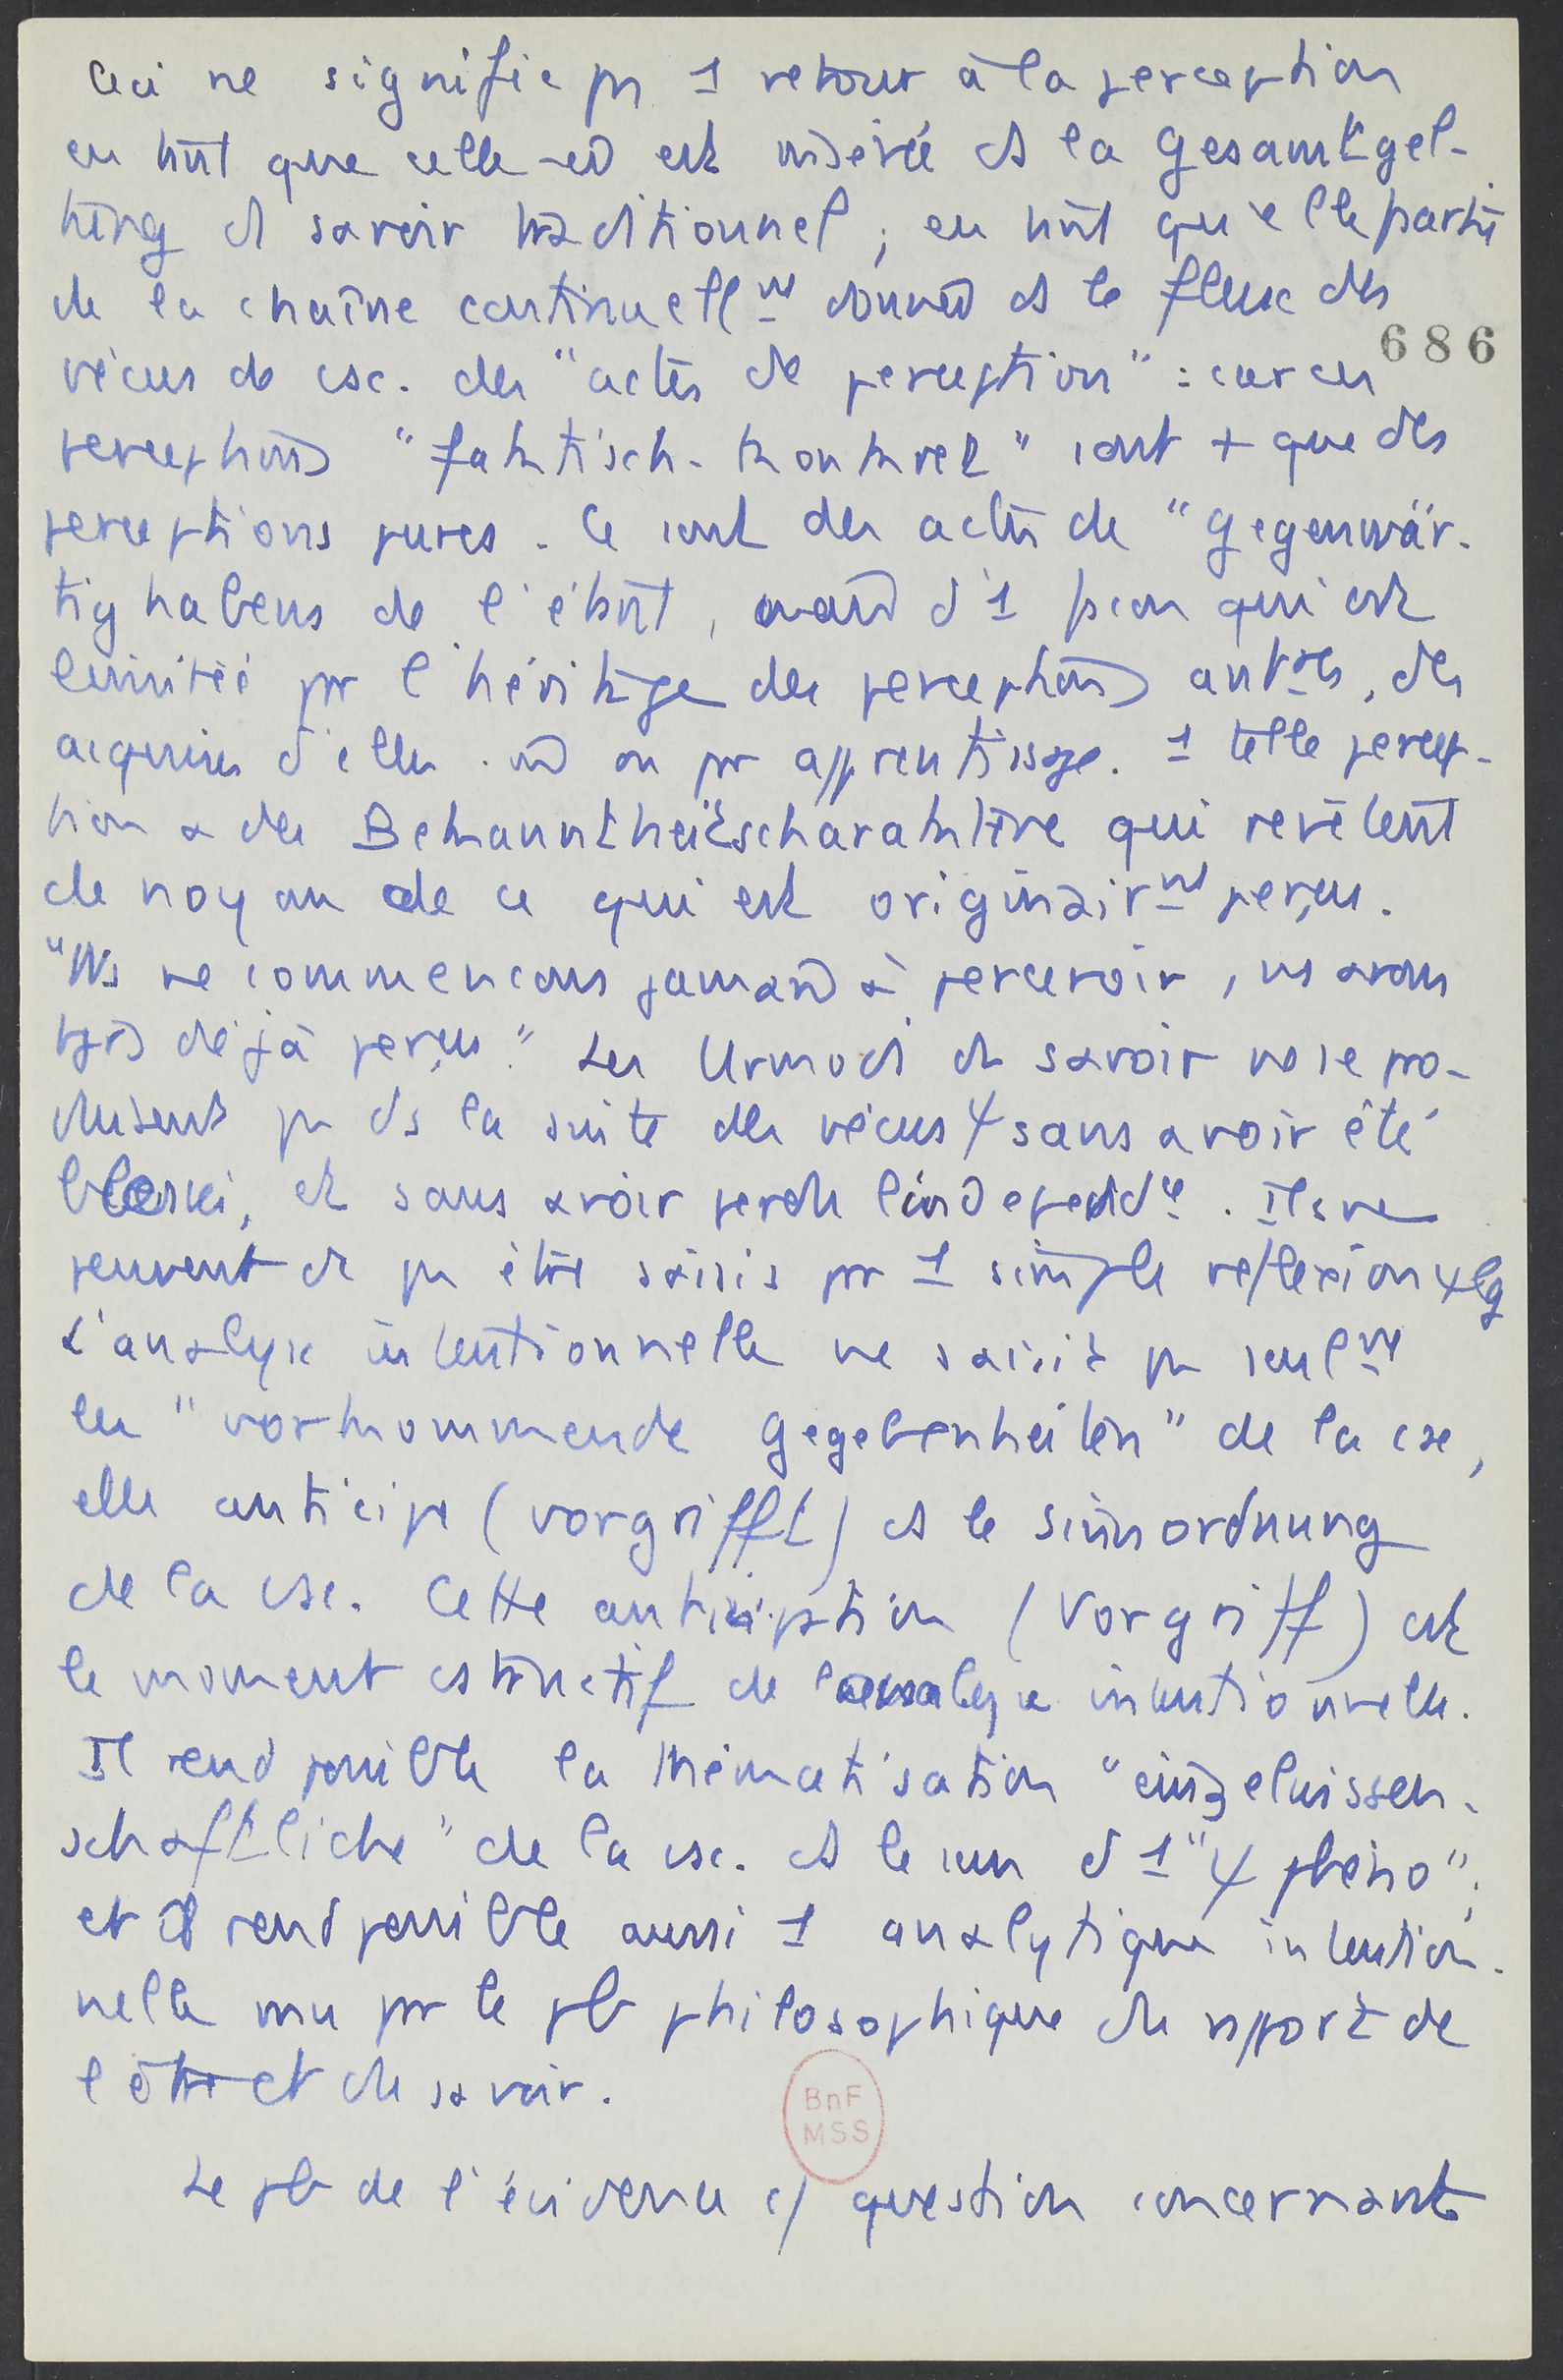 Ceci ne signifie pas 1 retour à la perception
en tant que celle-ci est insérée ds la Gesamtgel-
tung d savoir traditionnel ; en tant qu'elle partie
de la chaîne continuellmt donnée ds le flux des
686
vécus de csc. des "actes de perception" : car ces
perceptions "faktisch-konkret" sont + que des
perceptions pures. Ce sont des actes de "Gegenwär-
tighabens de l'étant, mais d'1 façon qui est
limitée pr l'héritage des perceptions antres, des
acquises d'elles-       ou pr apprentissage. 1 telle percep-
tion a des Bekanntheitscharaktère qui revêtent
de noyau de ce qui est originairmt perçu.
"Ns ne commençons jamais à percevoir, ns avons
tjrs déjà perçu." Les Urmodi de savoir ne se pro-
duisent pas ds la suite des vécus ψ sans avoir été
       , et sans avoir perdu l'indépendce. Ils ne
peuvent dc pas être saisis pr 1 simple réflexion ψlg
L'analyse intentionnelle ne saisit pas seulmt
les "vorkommende Gegebenheiten" de la csc,
elle anticipe (vorgrifft) ds le Sinnordnung
de la csc. Cette anticipation (Vorgriff) est
le moment cstructif de l'analyse intentionnelle.
Il rend possible la thématisation "einzelwissen-
schaftliche" de la csc. ds le sens d'1 "ψ phéno" ;
et il rend possible aussi 1 analytique intention-
nelle mu pr le pb philosophique du rapport de
l'être et du savoir.
BnF
MSS
Le pb de l'évidence c/ question concernant